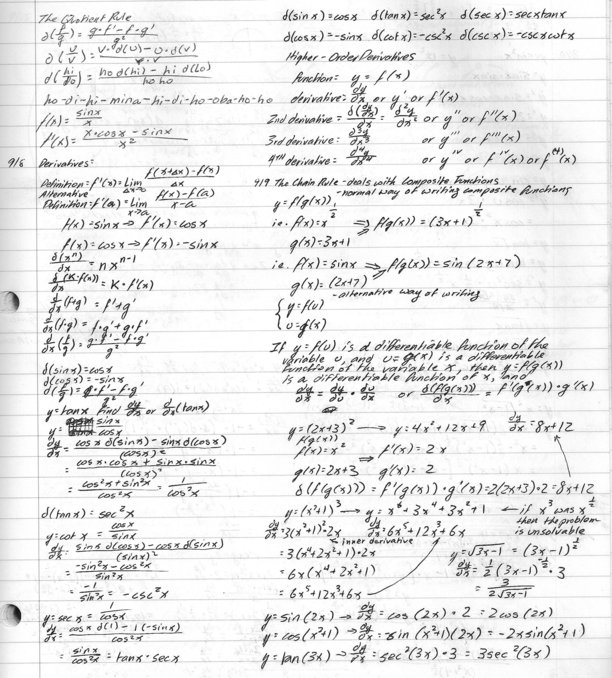 The Quotient Rule
d(f/g) = g·f' - f·g' / g²
d(u/v) = v·d(u) - u·d(v) / v·v
d(hi/ho) = ho d(hi) - hi d(ho) / ho ho
ho-di-hi-mina-hi-di-ho-oba-ho-ho
f(x) = sinx / x
f'(x) = x·cosx - sinx / x²
9/6 Derivatives:
Definition = f'(x) = Lim Δx→0 f(x+Δx) - f(x) / Δx
Alternative
Definition = f'(a) = Lim x→a f(x) - f(a) / x-a
f(x) = sinx → f'(x) = cosx
f(x) = cosx → f'(x) = -sinx
d(xⁿ)/dx = nxⁿ⁻¹
d/dx (K·f(x)) = K·f'(x)
d/dx (f+g) = f'+g'
d/dx (f·g) = f·g' + g·f'
d/dx (f/g) = g·f' - f·g' / g²
d(sinx) = cosx
d(cosx) = -sinx
d(f/g) = g·f' - f·g' / g²
y = tanx find dy/dx or d/dx (tanx)
y = sinx / cosx
dy/dx = cosx d(sinx) - sinx d(cosx) / (cosx)²
= cosx·cosx + sinx·sinx / (cosx)²
= cos²x + sin²x / cos²x = 1 / cos²x
d(tanx) = sec²x
y = cotx = cosx / sinx
dy/dx = sinx d(cosx) - cosx d(sinx) / (sinx)²
= -sin²x - cos²x / sin²x
= -1 / sin²x = -csc²x
y = secx = 1 / cosx
dy/dx = cosx d(1) - 1(-sinx) / cos²x
= sinx / cos²x = tanx·secx
d(sinx) = cosx d(tanx) = sec²x d(secx) = secxtanx
d(cosx) = -sinx d(cotx) = -csc²x d(cscx) = -cscxcotx
Higher-Order Derivatives
function: y = f(x)
derivative: dy/dx or y' or f'(x)
2nd derivative = d(dy/dx)/dx = d²y/dx² or y'' or f''(x)
3rd derivative = d³y/dx³ or y''' or f'''(x)
4th derivative = d⁴y/dx⁴ or y^iv or f^iv(x) or f^(4)(x)
9/9 The Chain Rule - deals with Composite Functions
- normal way of writing composite functions
y = f(g(x))
ie. f(x) = x^½ ⇒ f(g(x)) = (3x+1)^½
g(x) = 3x+1
ie. f(x) = sinx ⇒ f(g(x)) = sin(2x+7)
g(x) = (2x+7)
- alternative way of writing
{ y = f(u)
u = g(x)
If y = f(u) is a differentiable function of the
variable u, and u = g(x) is a differentiable
function of the variable x, then y = f(g(x))
is a differentiable function of x, and
dy/dx = dy/du · du/dx or d(f(g(x)))/dx = f'(g(x))·g'(x)
y = (2x+3)² → y = 4x²+12x+9 dy/dx = 8x+12
f(g(x))
f(x) = x² ⇒ f'(x) = 2x
g(x) = 2x+3 g'(x) = 2
d(f(g(x))) = f'(g(x))·g'(x) = 2(2x+3)·2 = 8x+12
y = (x²+1)³ → y = x⁶+3x⁴+3x²+1 ← if x³ was x^½
then the problem
is unsolvable
dy/dx = 3(x²+1)²·2x dy/dx = 6x⁵+12x³+6x
inner derivative
= 3(x⁴+2x²+1)·2x
= 6x(x⁴+2x²+1)
= 6x⁵+12x³+6x
y = √3x-1 = (3x-1)^½
dy/dx = ½(3x-1)^-½·3
= 3 / 2√3x-1
y = sin(2x) → dy/dx = cos(2x)·2 = 2cos(2x)
y = cos(x²+1) → dy/dx = -sin(x²+1)(2x) = -2xsin(x²+1)
y = tan(3x) → dy/dx = sec²(3x)·3 = 3sec²(3x)